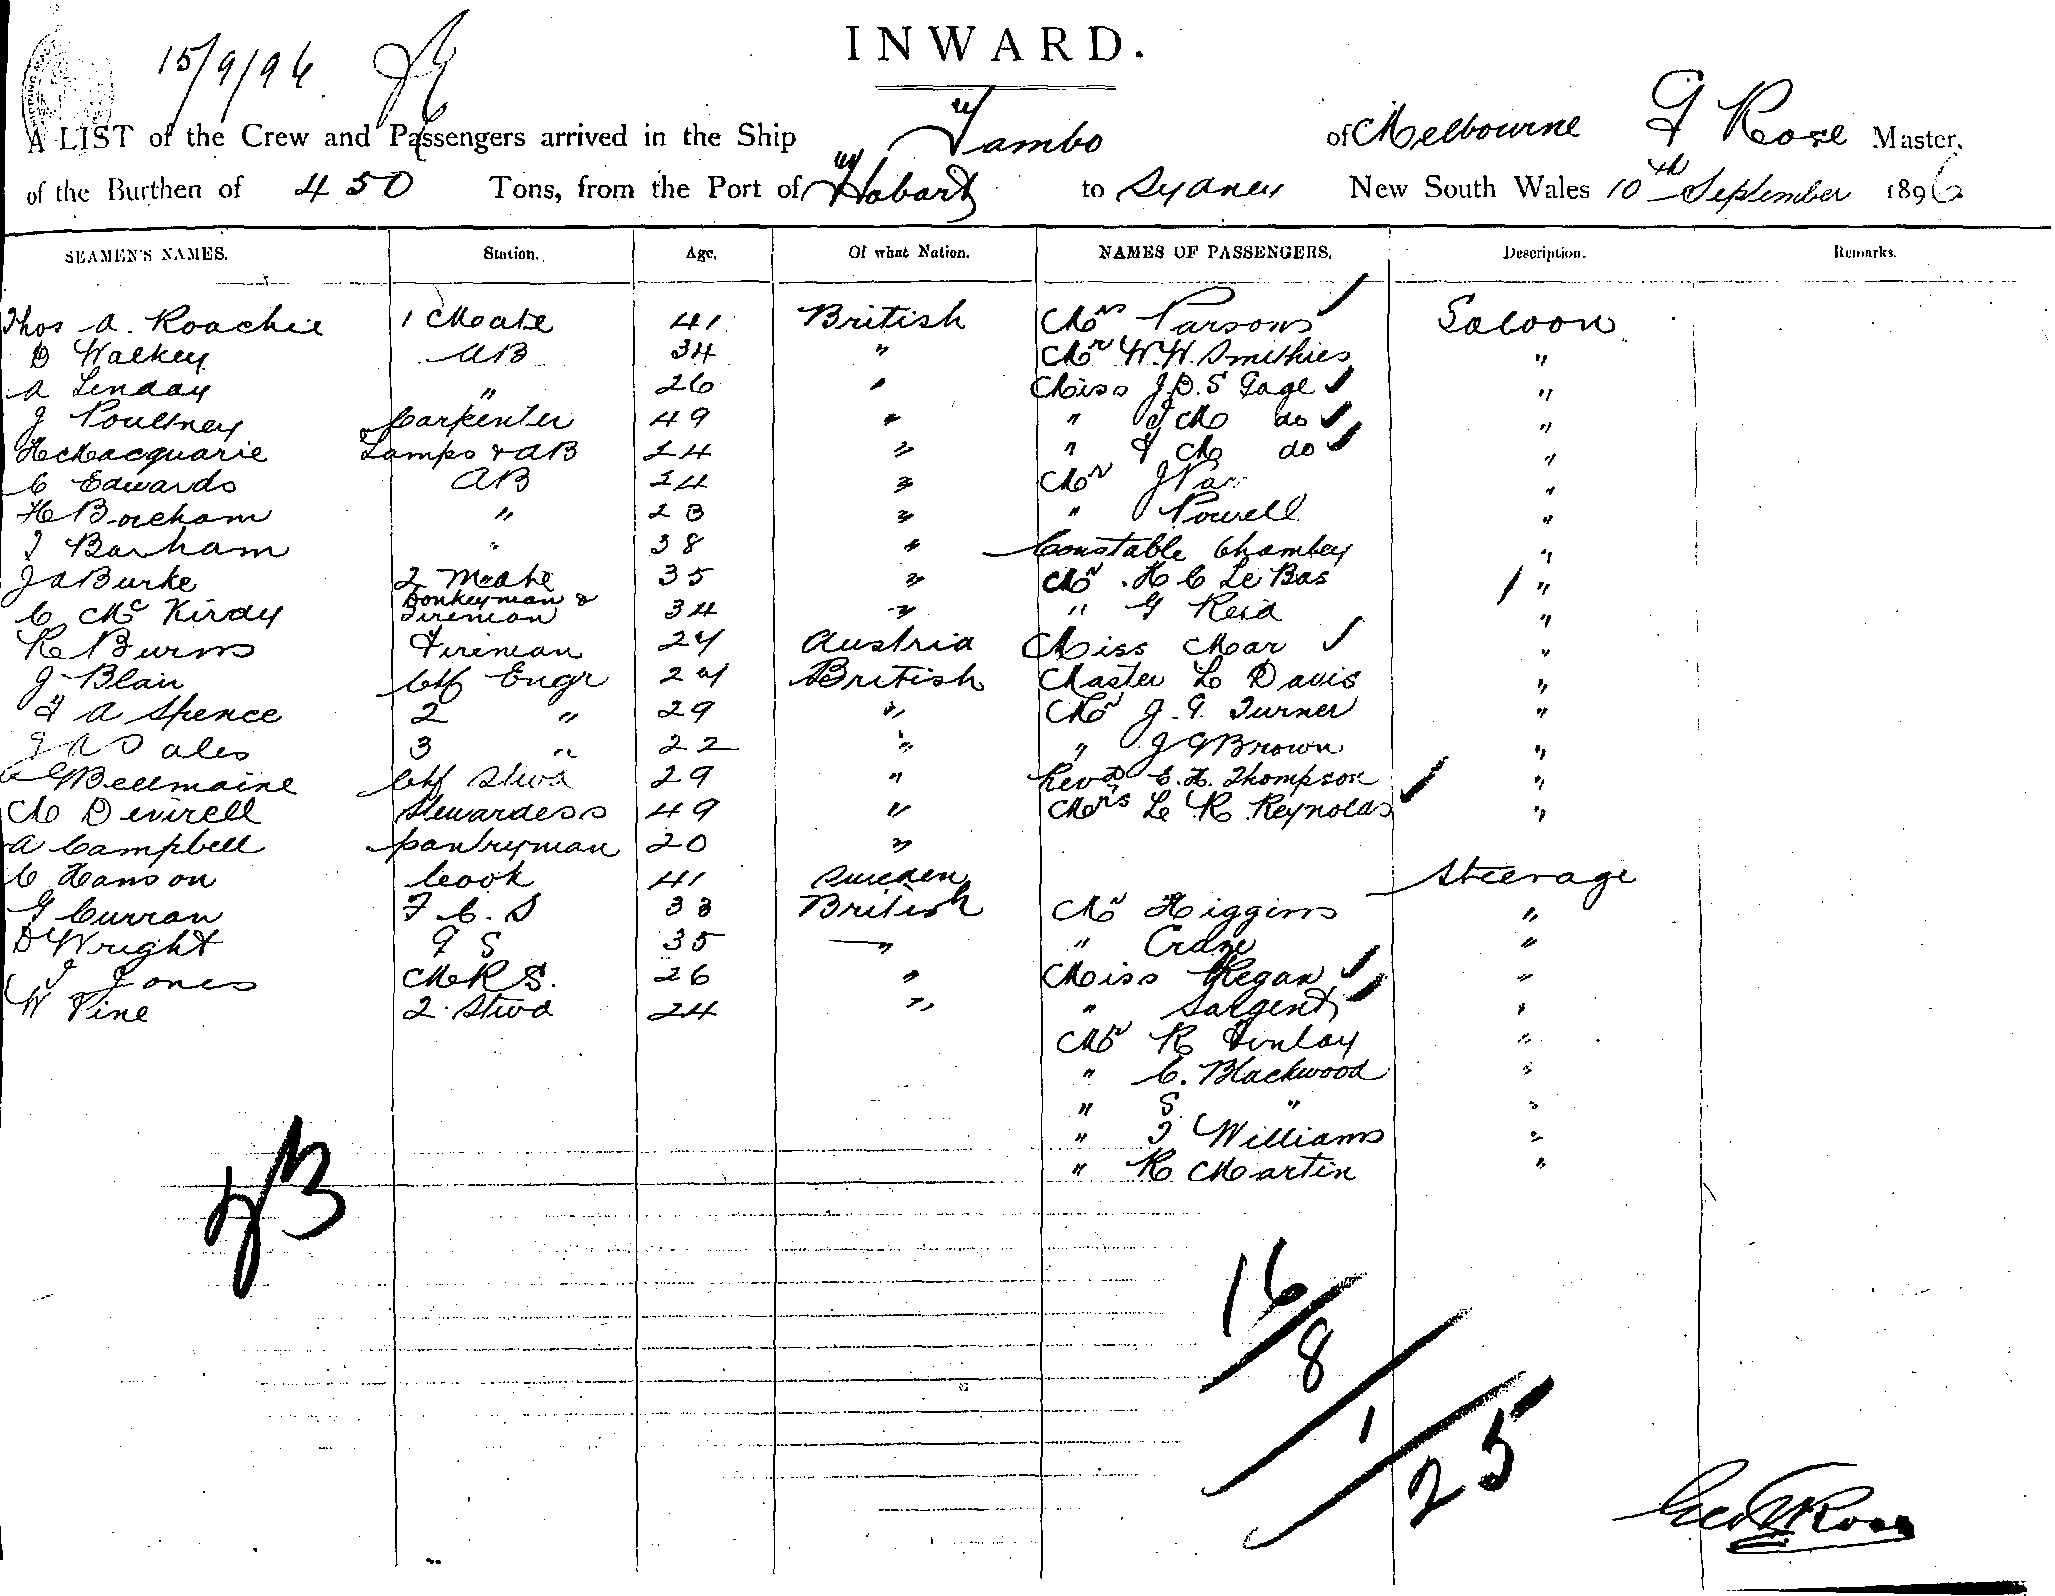 INWARD.
15/9/96
A LIST of the Crew and Passengers arrived in the Ship "Tambo" of Melbourne G Rose Master,
of the Burthen of 450 Tons, from the Port of Hobart to Sydney New South Wales 10th September 1896
SEAMEN'S NAMES. Station. Age. Of what Nation. NAMES OF PASSENGERS. Description. Remarks.
Thos A. Roachie 1 Mate 41 British Mrs Parsons Saloon
D Walkey AB 34 " Mr W.W. Smithies "
A Lenday " 26 " Miss J.D.S Gage "
J Poultney Carpenter 49 " " I M do "
H Macquarie Lamps & AB 24 " " F M do "
C Edwards AB 24 " Mr J "
H Boreham " 23 " " Powell "
T Barham " 38 " Constable Chambey "
J A Burke 2 Mate 35 " Mr H C Le Bas "
C McKirdy Donkeyman & Fireman 34 " " G Reid "
R Burns Fireman 24 Austria Miss Mar "
J Blair Chf Engr 24 British Master L Davis "
F A Spence 2 " 29 " Mr J. G. Turner "
J A Dales 3 " 22 " " J G Brown "
Bellmaine Chf Stwd 29 " Revd E. H. Thompson "
M Deverell Stewardess 49 " Mrs L R Reynolds "
A Campbell pantryman 20 "
C Hanson Cook 41 Sweden Steerage
J Curran F. C. S 33 British Mr Higgins "
D Wright F S 35 " " Craze "
T Jones M R S. 26 " Miss Regan "
W Pine 2. Stwd 24 " " Sargent "
Mr R Finlay "
" C. Blackwood "
" S " "
" T Williams "
" R Martin "
16/8/1/25
Geo Rose